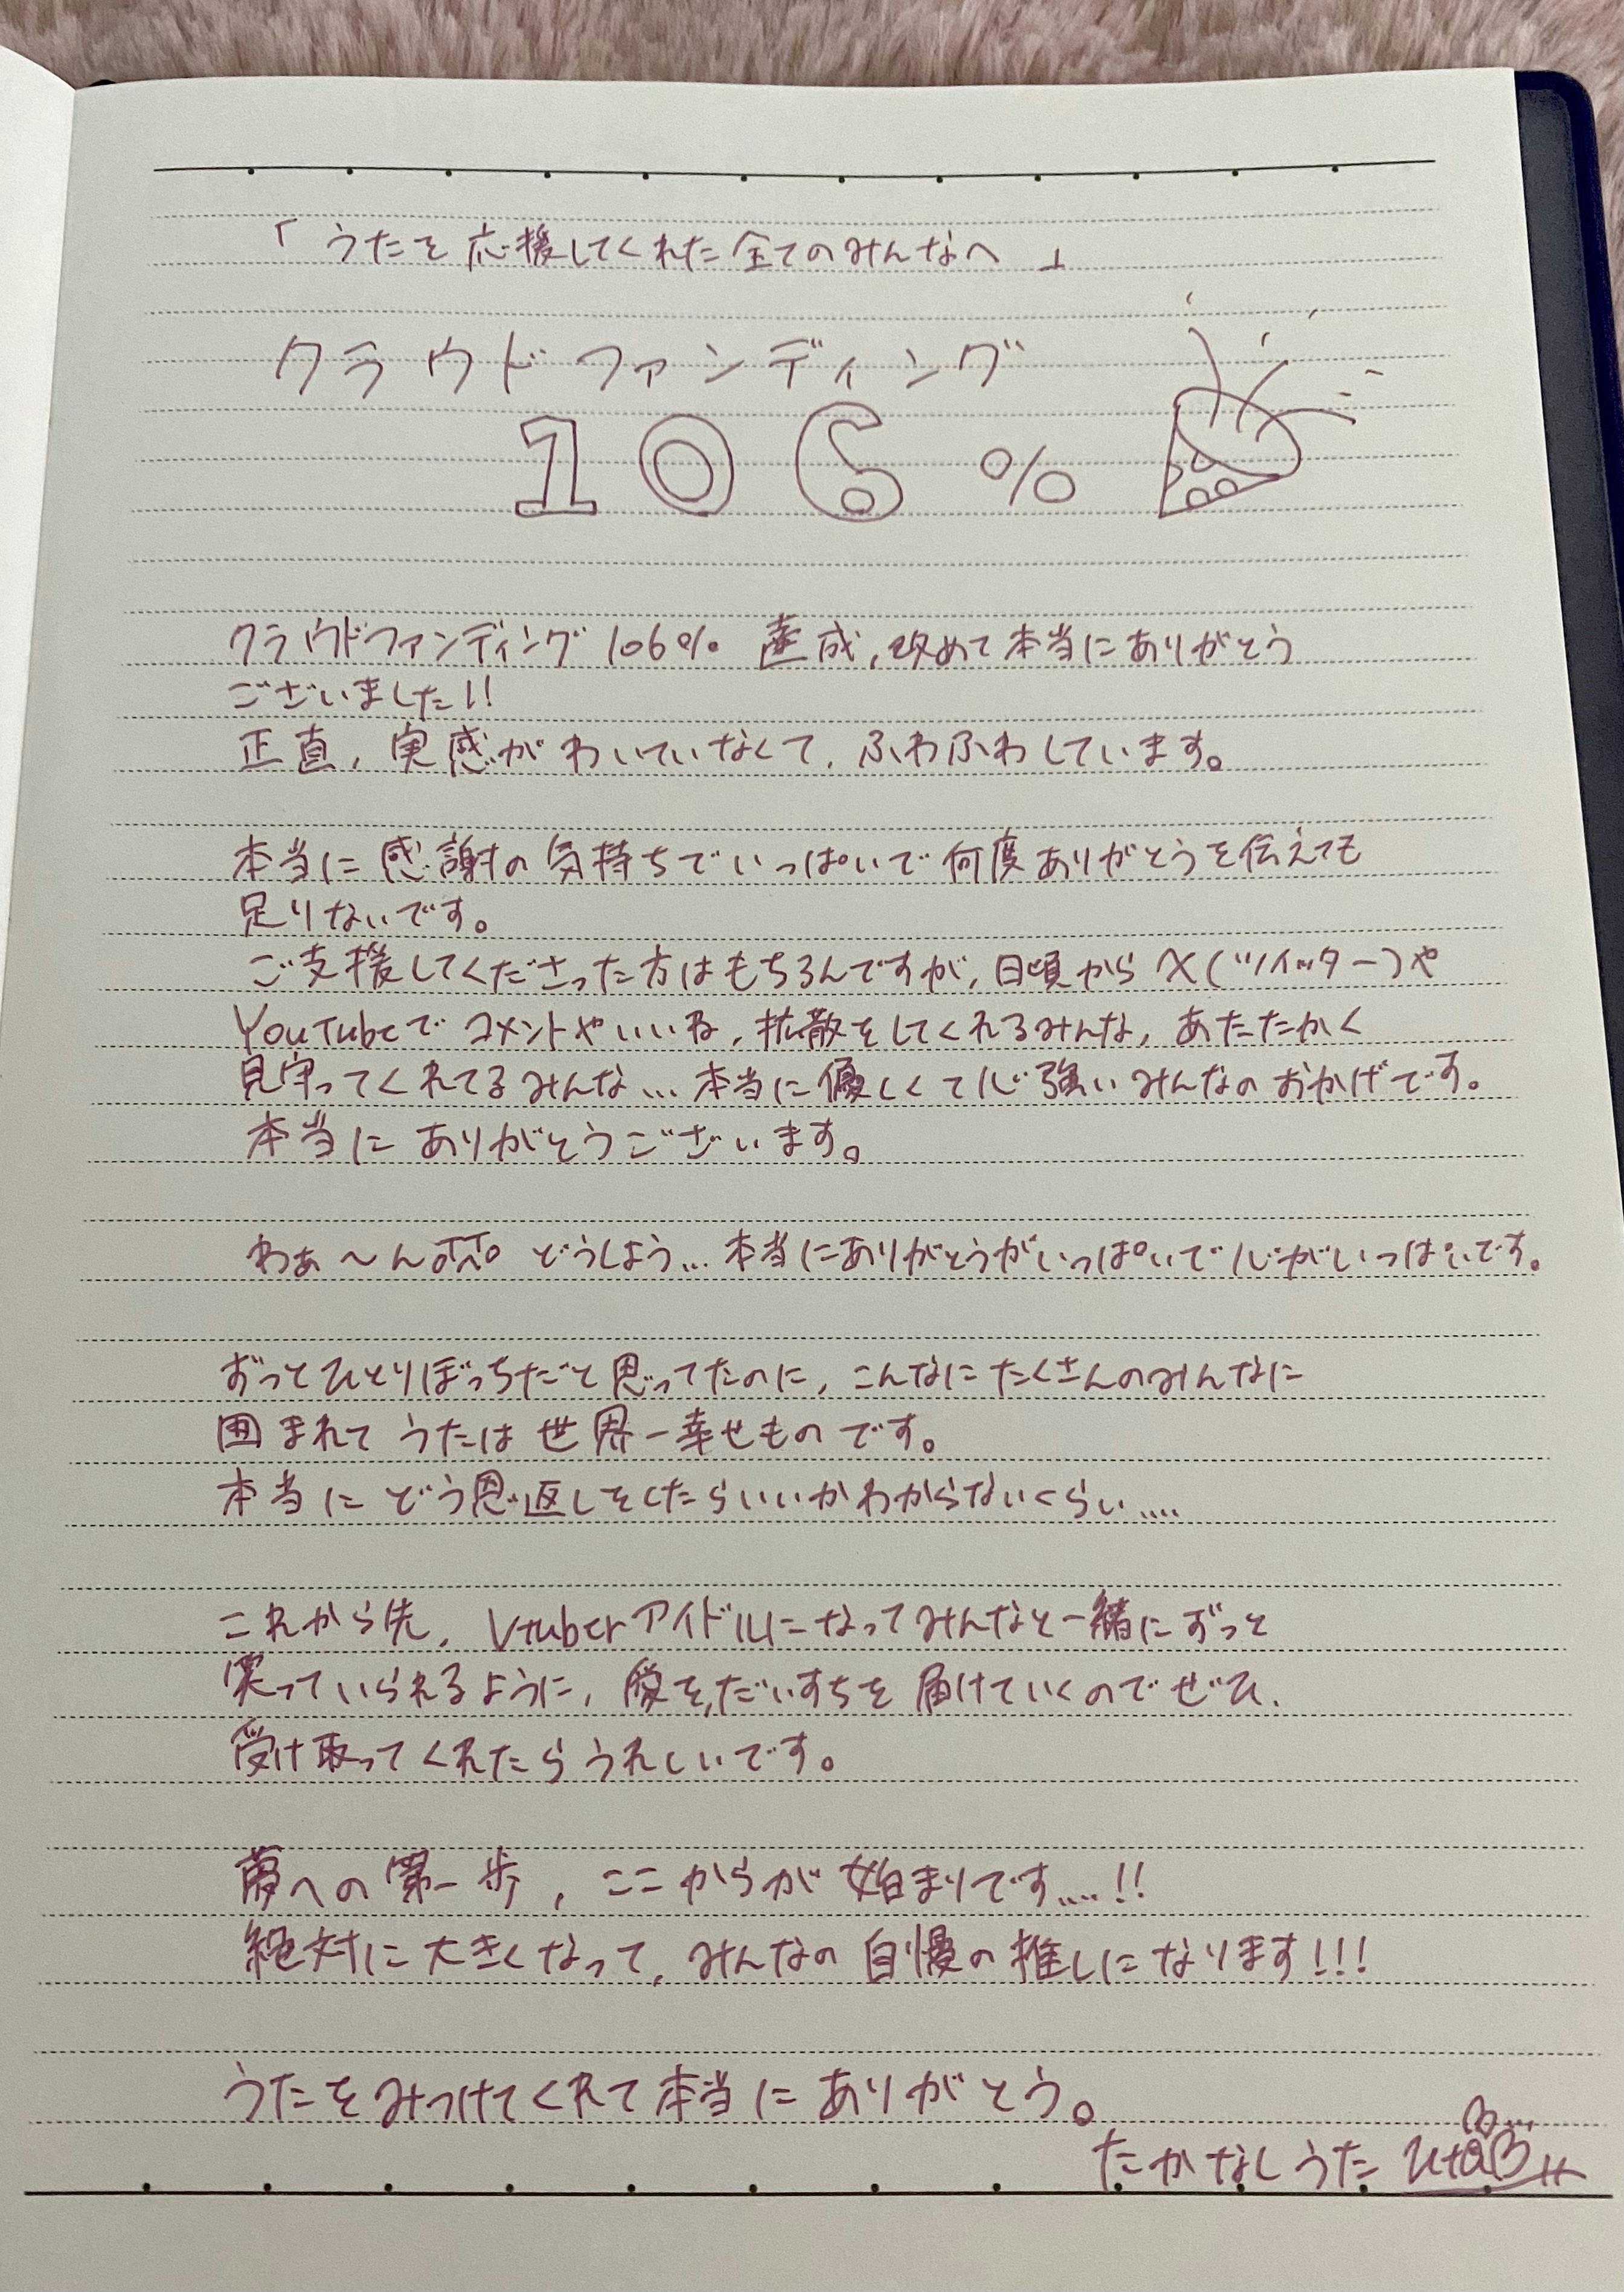 「うたを応援してくれた全てのみんなへ」
クラウドファンディング
106%
クラウドファンディング106%達成、改めて本当にありがとう
ございました!!
正直、実感がわいていなくて、ふわふわしています。
本当に感謝の気持ちでいっぱいで何度ありがとうを伝えても
足りないです。
ご支援してくださった方はもちろんですが、日頃からX(ツイッター)や
YouTubeでコメントやいいね、拡散をしてくれるみんな、あたたかく
見守ってくれてるみんな...本当に優しくて心強いみんなのおかげです。
本当にありがとうございます。
わぁ〜ん どうしよう...本当にありがとうがいっぱいで心がいっぱいです。
ずっとひとりぼっちだと思ってたのに、こんなにたくさんのみんなに
囲まれてうたは世界一幸せものです。
本当にどう恩返しをしたらいいかわからないくらい....
これから先、Vtuberアイドルになってみんなと一緒にずっと
笑っていられるように、愛を、だいすきを届けていくのでぜひ、
受け取ってくれたらうれしいです。
夢への第一歩、ここからが始まりです....!!
絶対に大きくなって、みんなの自慢の推しになります!!!
うたをみつけてくれて本当にありがとう。
たかなしうた Uta